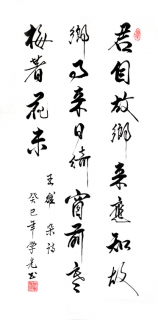 君自故鄉来應知故
鄉事来日綺窗前寒
梅著花未
王維雜詩
癸巳年學光书